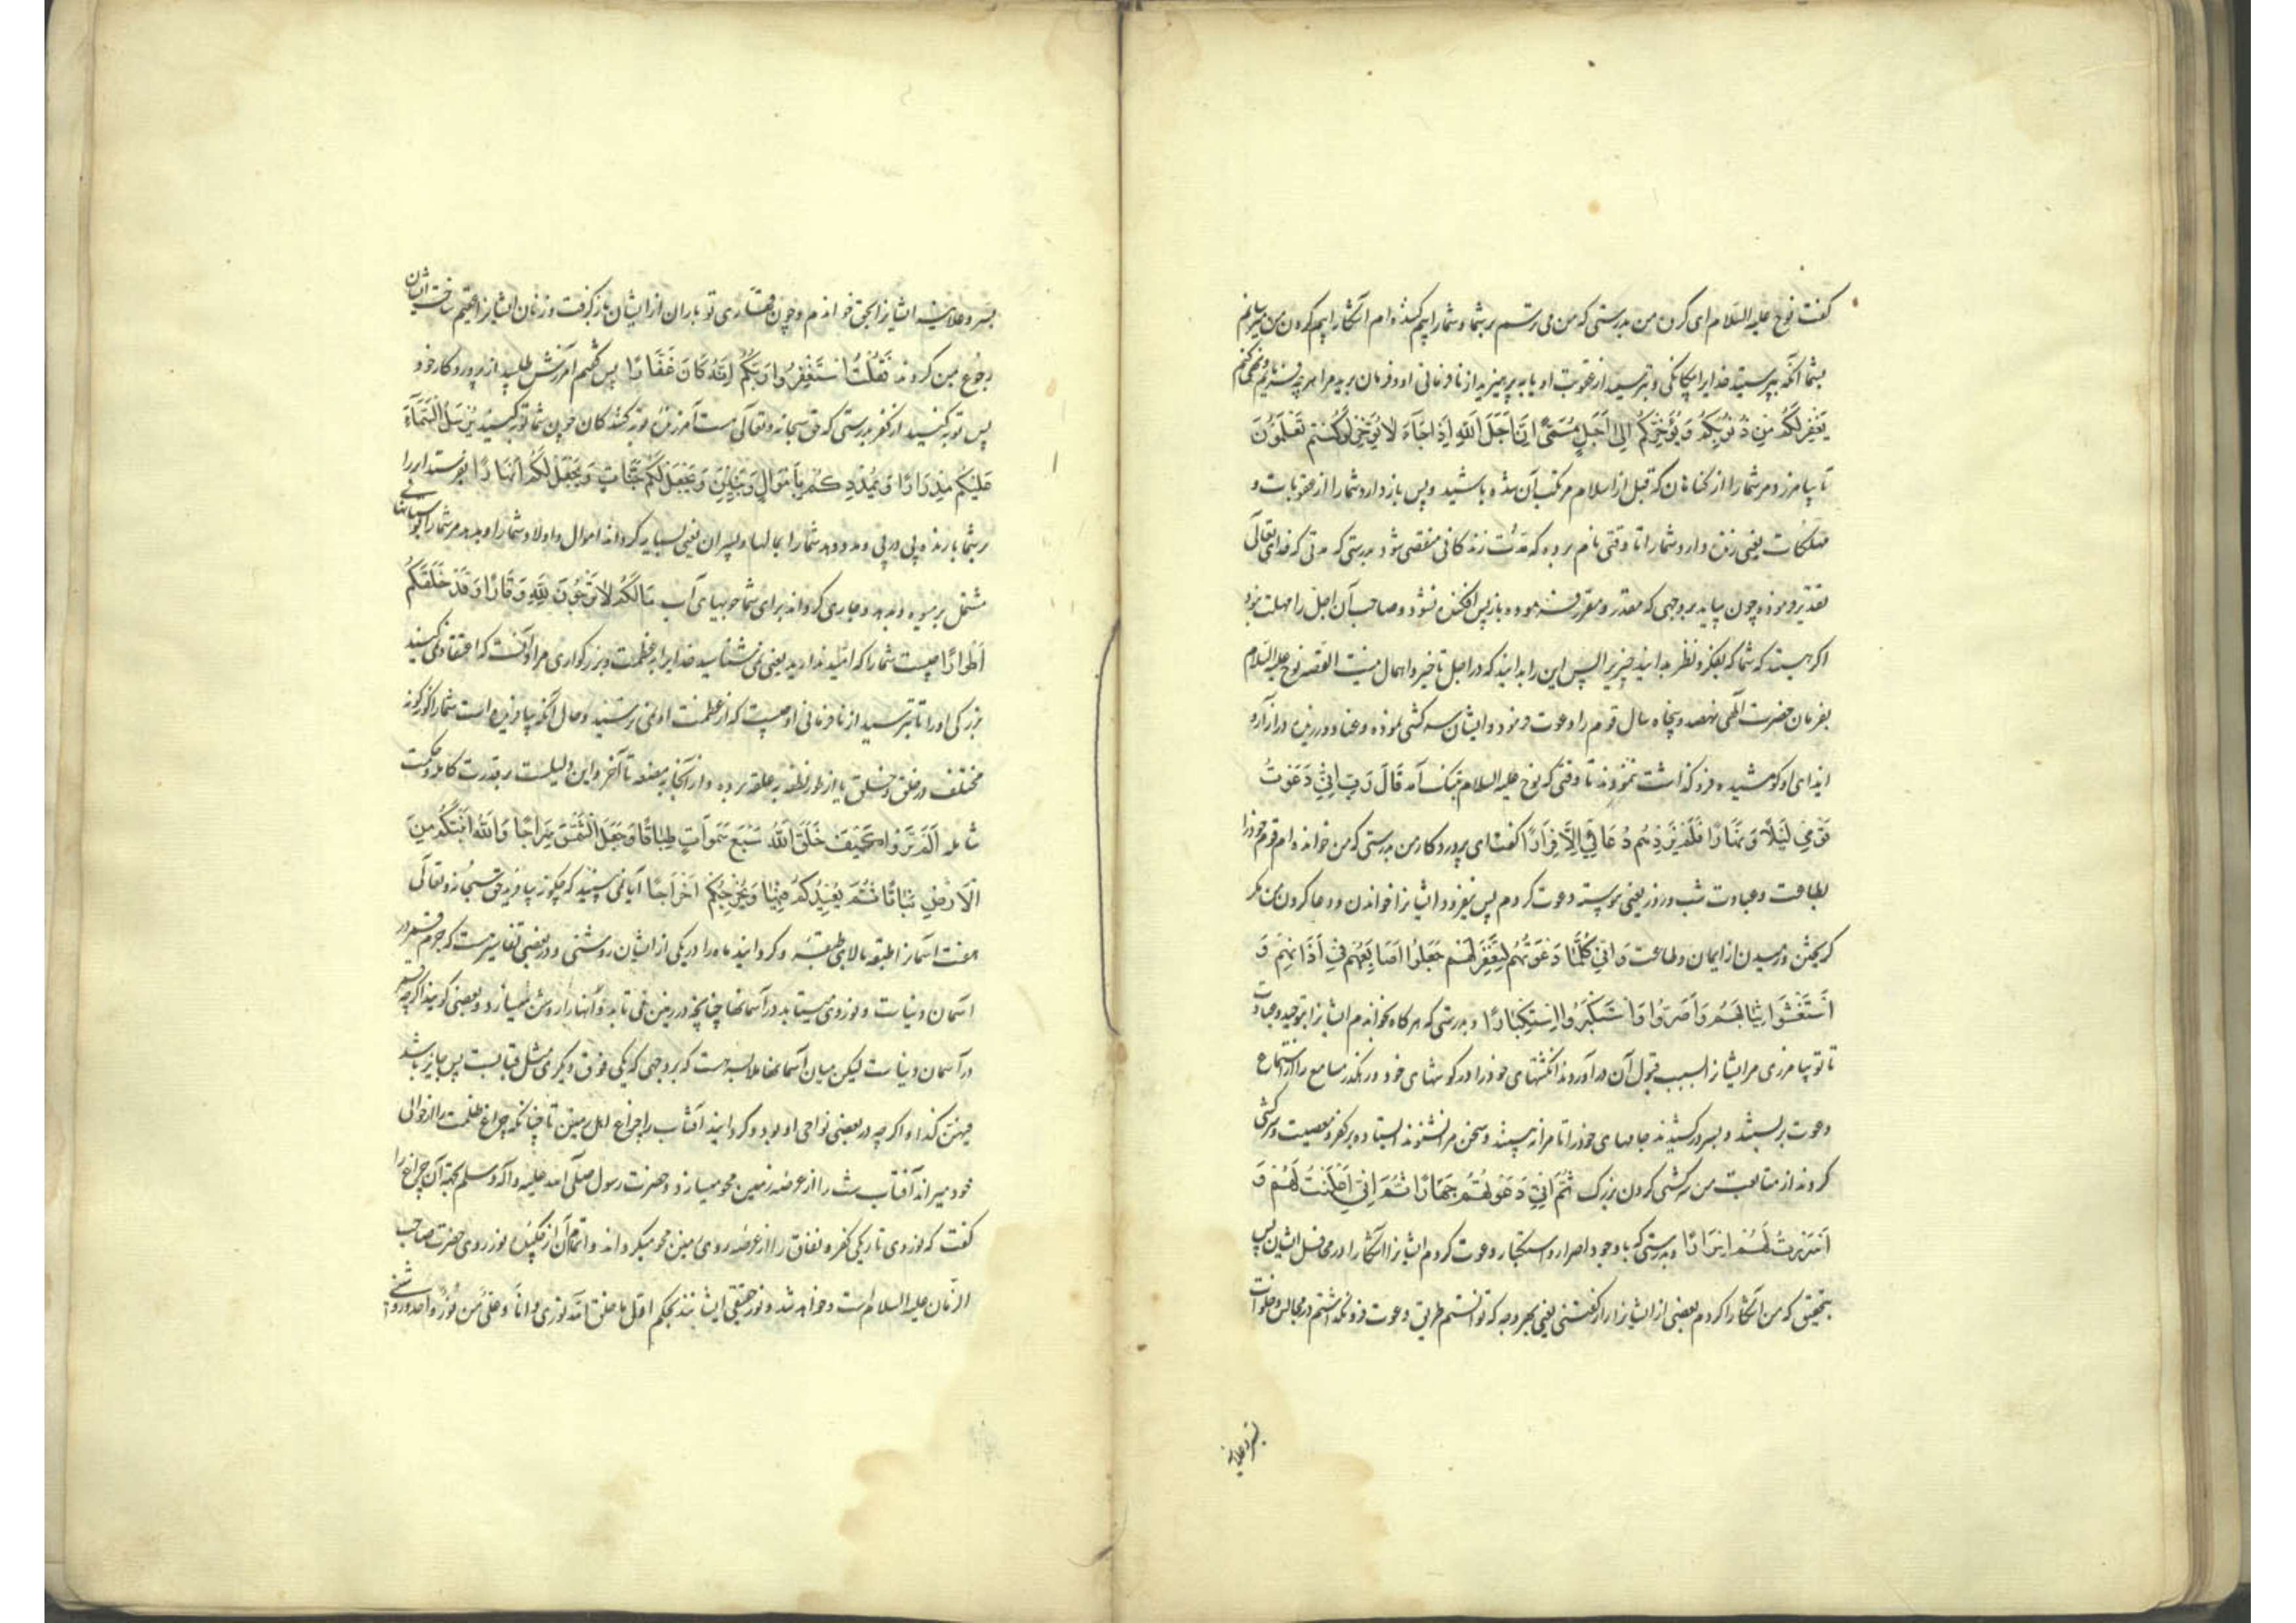 گفت نوح علیه السلام ای کروه من بدرستی که من می ترسم بر شما و شما را بیم کننده ام آشکارا بیم کردن من میرسانم
بشما آنکه بپرستید خدایرا بیکانکی و بترسید از عقوبت او یا به پرهیزید از نافرمانی او و فرمان برید مرا هر چه فرمایم و نهی کنم
یَغْفِرْ لَکُمْ مِنْ ذُنُوبِکُمْ وَ یُؤَخِّرْکُمْ اِلٰی اَجَلٍ مُسَمًّی اِنَّ اَجَلَ اللهِ اِذَا جَآءَ لَا یُؤَخَّرُ لَوْ کُنْتُمْ تَعْلَمُونَ
تا بیامرزد مر شما را از کناهان که قبل از اسلام مرتکب آن شده باشید و پس باز دارد شما را از عقوبات و
مهلکات یعنی زنده دارد شما را تا وقتی نام برده که مدت زندکانی منقضی شود بدرستی که مدتی که خدای تعالی
تقدیر فرموده چون بیاید بر وجهی که مقدر و مقرر فرموده باز پس افکنده نشود و صاحب آن اجل را مهلت نبود
اکر هستید که شما که بفکر و نظر بدانید چیزیرا پس این را بدانید که در اجل تاخیر و اهمال نیست القصه نوح علیه السلام
بفرمان حضرت الهی نهصد و پنجاه سال قوم را دعوت فرمود و ایشان سرکشی نموده و عناد ورزیدن در آزار و
ایذای او کوشیده فرو کذاشت ننمودند تا وقتی که نوح علیه السلام بتنک آمد قَالَ رَبِّ اِنِّی دَعَوْتُ
قَوْمِی لَیْلًا وَ نَهَارًا فَلَمْ یَزِدْهُمْ دُعَآئِی اِلَّا فِرَارًا کفت ای پروردکار من بدرستی که من خوانده ام قوم خود را
بطاعت و عبادت شب و روز یعنی پیوسته دعوت کردم پس نیفزود ایشانرا خواندن و دعا کردن من مکر
کریختن و رمیدن از ایمان و طاعت وَ اِنِّی کُلَّمَا دَعَوْتُهُمْ لِتَغْفِرَ لَهُمْ جَعَلُوا اَصَابِعَهُمْ فِی اٰذَانِهِمْ وَ
اسْتَغْشَوْا ثِیَابَهُمْ وَ اَصَرُّوا وَ اسْتَکْبَرُوا اسْتِکْبَارًا و بدرستی که هر کاه بخوانم ایشانرا بتوحید و عبادت
تا تو بیامرزی مر ایشانرا بسبب قبول آن در آوردند انکشتهای خود را در کوشهای خود و رهکذر مسامع را از استماع
دعوت بر بستند و بسر در کشیدند جامهای خود را تا مرا نه بینند و سخن مرا نشنوند ایستاده بر کفر و معصیت و سرکشی
کردند از متابعت من سرکشی کردن بزرک ثُمَّ اِنِّی دَعَوْتُهُمْ جِهَارًا ثُمَّ اِنِّی اَعْلَنْتُ لَهُمْ وَ
اَسْرَرْتُ لَهُمْ اِسْرَارًا و بدرستی که با وجود اصرار و استکبار دعوت کردم ایشانرا آشکارا در محافل ایشان پس
بتحقیق که من آشکارا کردم بعضی از ایشانرا راز کفتنی یعنی بهر وجه که توانستم طریق دعوت فرو نکذاشتم در مجالس و خلوات
بسر و علانیه
بسر و علانیه ایشانرا بحق خواندم و چون قهاری تو باران از ایشان باز کرفت و زنان ایشانرا عقیم ساخت ایشان
رجوع بمن کردند فَقُلْتُ اسْتَغْفِرُوا رَبَّکُمْ اِنَّهُ کَانَ غَفَّارًا پس کفتم آمرزش طلبید از پروردکار خود
پس توبه کنید از کفر بدرستی که حق سبحانه و تعالی هست آمرزنده توبه کنندکان چون شما توبه کنید یُرْسِلِ السَّمَآءَ
عَلَیْکُمْ مِدْرَارًا وَ یُمْدِدْکُمْ بِاَمْوَالٍ وَ بَنِینَ وَ یَجْعَلْ لَکُمْ جَنَّاتٍ وَ یَجْعَلْ لَکُمْ اَنْهَارًا بفرستد ابر را
بر شما بارنده پی در پی و مدد دهد شما را بمالها و پسران یعنی بسیار کرداند اموال و اولاد شما را و بدهد مر شما را بوستانهائی
مشتمل بر میوه و بدهد و جاری کرداند برای شما جویهای آب مَا لَکُمْ لَا تَرْجُونَ لِلهِ وَقَارًا وَ قَدْ خَلَقَکُمْ
اَطْوَارًا چیست شما را که امید ندارید یعنی نمی شناسید خدایرا بعظمت و بزرکواری مراد آنست که اعتقاد نمی کنید
بزرکی او را تا بترسید از نافرمانی او چیست که از عظمت او نمی ترسید و حال آنکه بیافریده است شما را کونه کونه
مختلف در خلق و خلق یا از طور نطفه به علقه برده و از آنجا به مضغه تا آخر و این دلیلست بر قدرت کامله و حکمت
شامله اَلَمْ تَرَوْا کَیْفَ خَلَقَ اللهُ سَبْعَ سَمٰوَاتٍ طِبَاقًا وَ جَعَلَ الشَّمْسَ سِرَاجًا وَ اللهُ اَنْبَتَکُمْ مِنَ
الْاَرْضِ نَبَاتًا ثُمَّ یُعِیدُکُمْ فِیهَا وَ یُخْرِجُکُمْ اِخْرَاجًا آیا نمی بینید که چکونه بیافرید حق سبحانه و تعالی
هفت آسمانرا طبقه بالای طبقه و کردانید ماه را در یکی از ایشان روشنی و در بعضی تفاسیر هست که جرم قمر در
آسمان دنیاست و نور وی میتابد در آسمانها چنانچه در زمین می تابد و آنها را روشن میسازد و بعضی کویند اکرچه قمر
در آسمان دنیاست لیکن میان آسمانها ملابسه هست که بر وجهی که یکی فوق دیکری مثل قبابست پس جایز باشد
فیهن کذا و اکرچه در بعضی نواحی او بود و کردانید آفتاب را چراغ اهل زمین تا چنانکه چراغ ظلمت را از حوالی
خود میراند آفتاب شب را از عرصه زمین محو میسازد و حضرت رسول صلی الله علیه و آله و سلم بجهة آن چراغ را
کفت که نور وی تاریکی کفر و نفاق را از عرصه روی زمین محو میکرداند و اتمام آن نور روی حضرت صاحب
الزمان علیه السلام است و خواهد شد و نور حقیقی ایشانند بحکم اول ما خلق الله نوری و انا و علی من نور واحد و روشنی